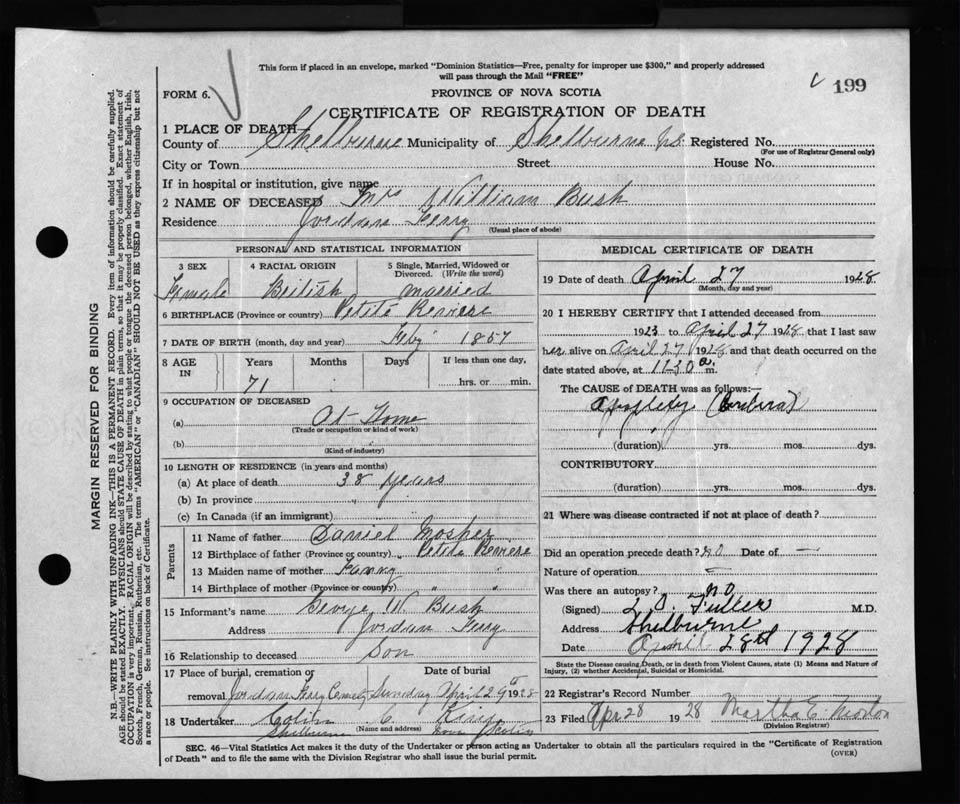 This form if placed in an envelope, marked "Dominion Statistics—Free, penalty for improper use $300," and properly addressed
will pass through the Mail "FREE"
FORM 6.
PROVINCE OF NOVA SCOTIA
199
CERTIFICATE OF REGISTRATION OF DEATH
1 PLACE OF DEATH
County of Shelburne Municipality of Shelburne Registered No.
(For use of Registrar General only)
City or Town Street House No.
If in hospital or institution, give name
2 NAME OF DECEASED Mrs William Bush
Residence Jordan Ferry
(Usual place of abode)
PERSONAL AND STATISTICAL INFORMATION
3 SEX 4 RACIAL ORIGIN 5 Single, Married, Widowed or Divorced. (Write the word)
Female British married
6 BIRTHPLACE (Province or country) Petite Reviere
7 DATE OF BIRTH (month, day and year) Feby 1857
8 AGE IN Years Months Days If less than one day,
71 hrs. or min.
9 OCCUPATION OF DECEASED
(a) At Home
(Trade or occupation or kind of work)
(b)
(Kind of industry)
10 LENGTH OF RESIDENCE (in years and months)
(a) At place of death 38 years
(b) In province "
(c) In Canada (if an immigrant)
Parents
11 Name of father Daniel Mosher
12 Birthplace of father (Province or country) " Petite Reviere
13 Maiden name of mother Fanny "
14 Birthplace of mother (Province or country) " "
15 Informant's name George W. Bush
Address Jordan Ferry
16 Relationship to deceased son
17 Place of burial, cremation or removal Date of burial
Jordan Ferry Cemety Sunday April 29 1928
18 Undertaker Colin C. King
(Name and address)
Shelburne Nova Scotia
MEDICAL CERTIFICATE OF DEATH
19 Date of death April 27 1928
(Month, day and year)
20 I HEREBY CERTIFY that I attended deceased from
1923 to April 27 1928 that I last saw
her alive on April 27 1928 and that death occurred on the
date stated above, at 11-30 a m.
The CAUSE OF DEATH was as follows:—
Apoplexy (Cerebral)
(duration) yrs. mos. dys.
CONTRIBUTORY
(duration) yrs. mos. dys.
21 Where was disease contracted if not at place of death?
Did an operation precede death? no Date of —
Nature of operation —
Was there an autopsy? no
(Signed) L. O. Fuller M.D.
Address Shelburne
Date April 28th 1928
State the Disease causing Death, or in death from Violent Causes, state (1) Means and Nature of
Injury, (2) whether Accidental, Suicidal or Homicidal.
22 Registrar's Record Number
23 Filed Apr 28 1928 Martha E. Morton
(Division Registrar)
SEC. 46—Vital Statistics Act makes it the duty of the Undertaker or person acting as Undertaker to obtain all the particulars required in the "Certificate of Registration
of Death" and to file the same with the Division Registrar who shall issue the burial permit.
(OVER)
MARGIN RESERVED FOR BINDING
N.B.—WRITE PLAINLY WITH UNFADING INK—THIS IS A PERMANENT RECORD. Every item of information should be carefully supplied.
AGE should be stated EXACTLY. PHYSICIANS should STATE CAUSE OF DEATH in plain terms, so that it may be properly classified. Exact statement of
OCCUPATION is very important. RACIAL ORIGIN will be described by stating to what people or tongue the deceased person belonged, whether English, Irish,
Scotch, French, German, Russian, Ruthenian, etc. The terms "AMERICAN" or "CANADIAN" SHOULD NOT BE USED as they express citizenship but not
a race or people. See instructions on back of Certificate.